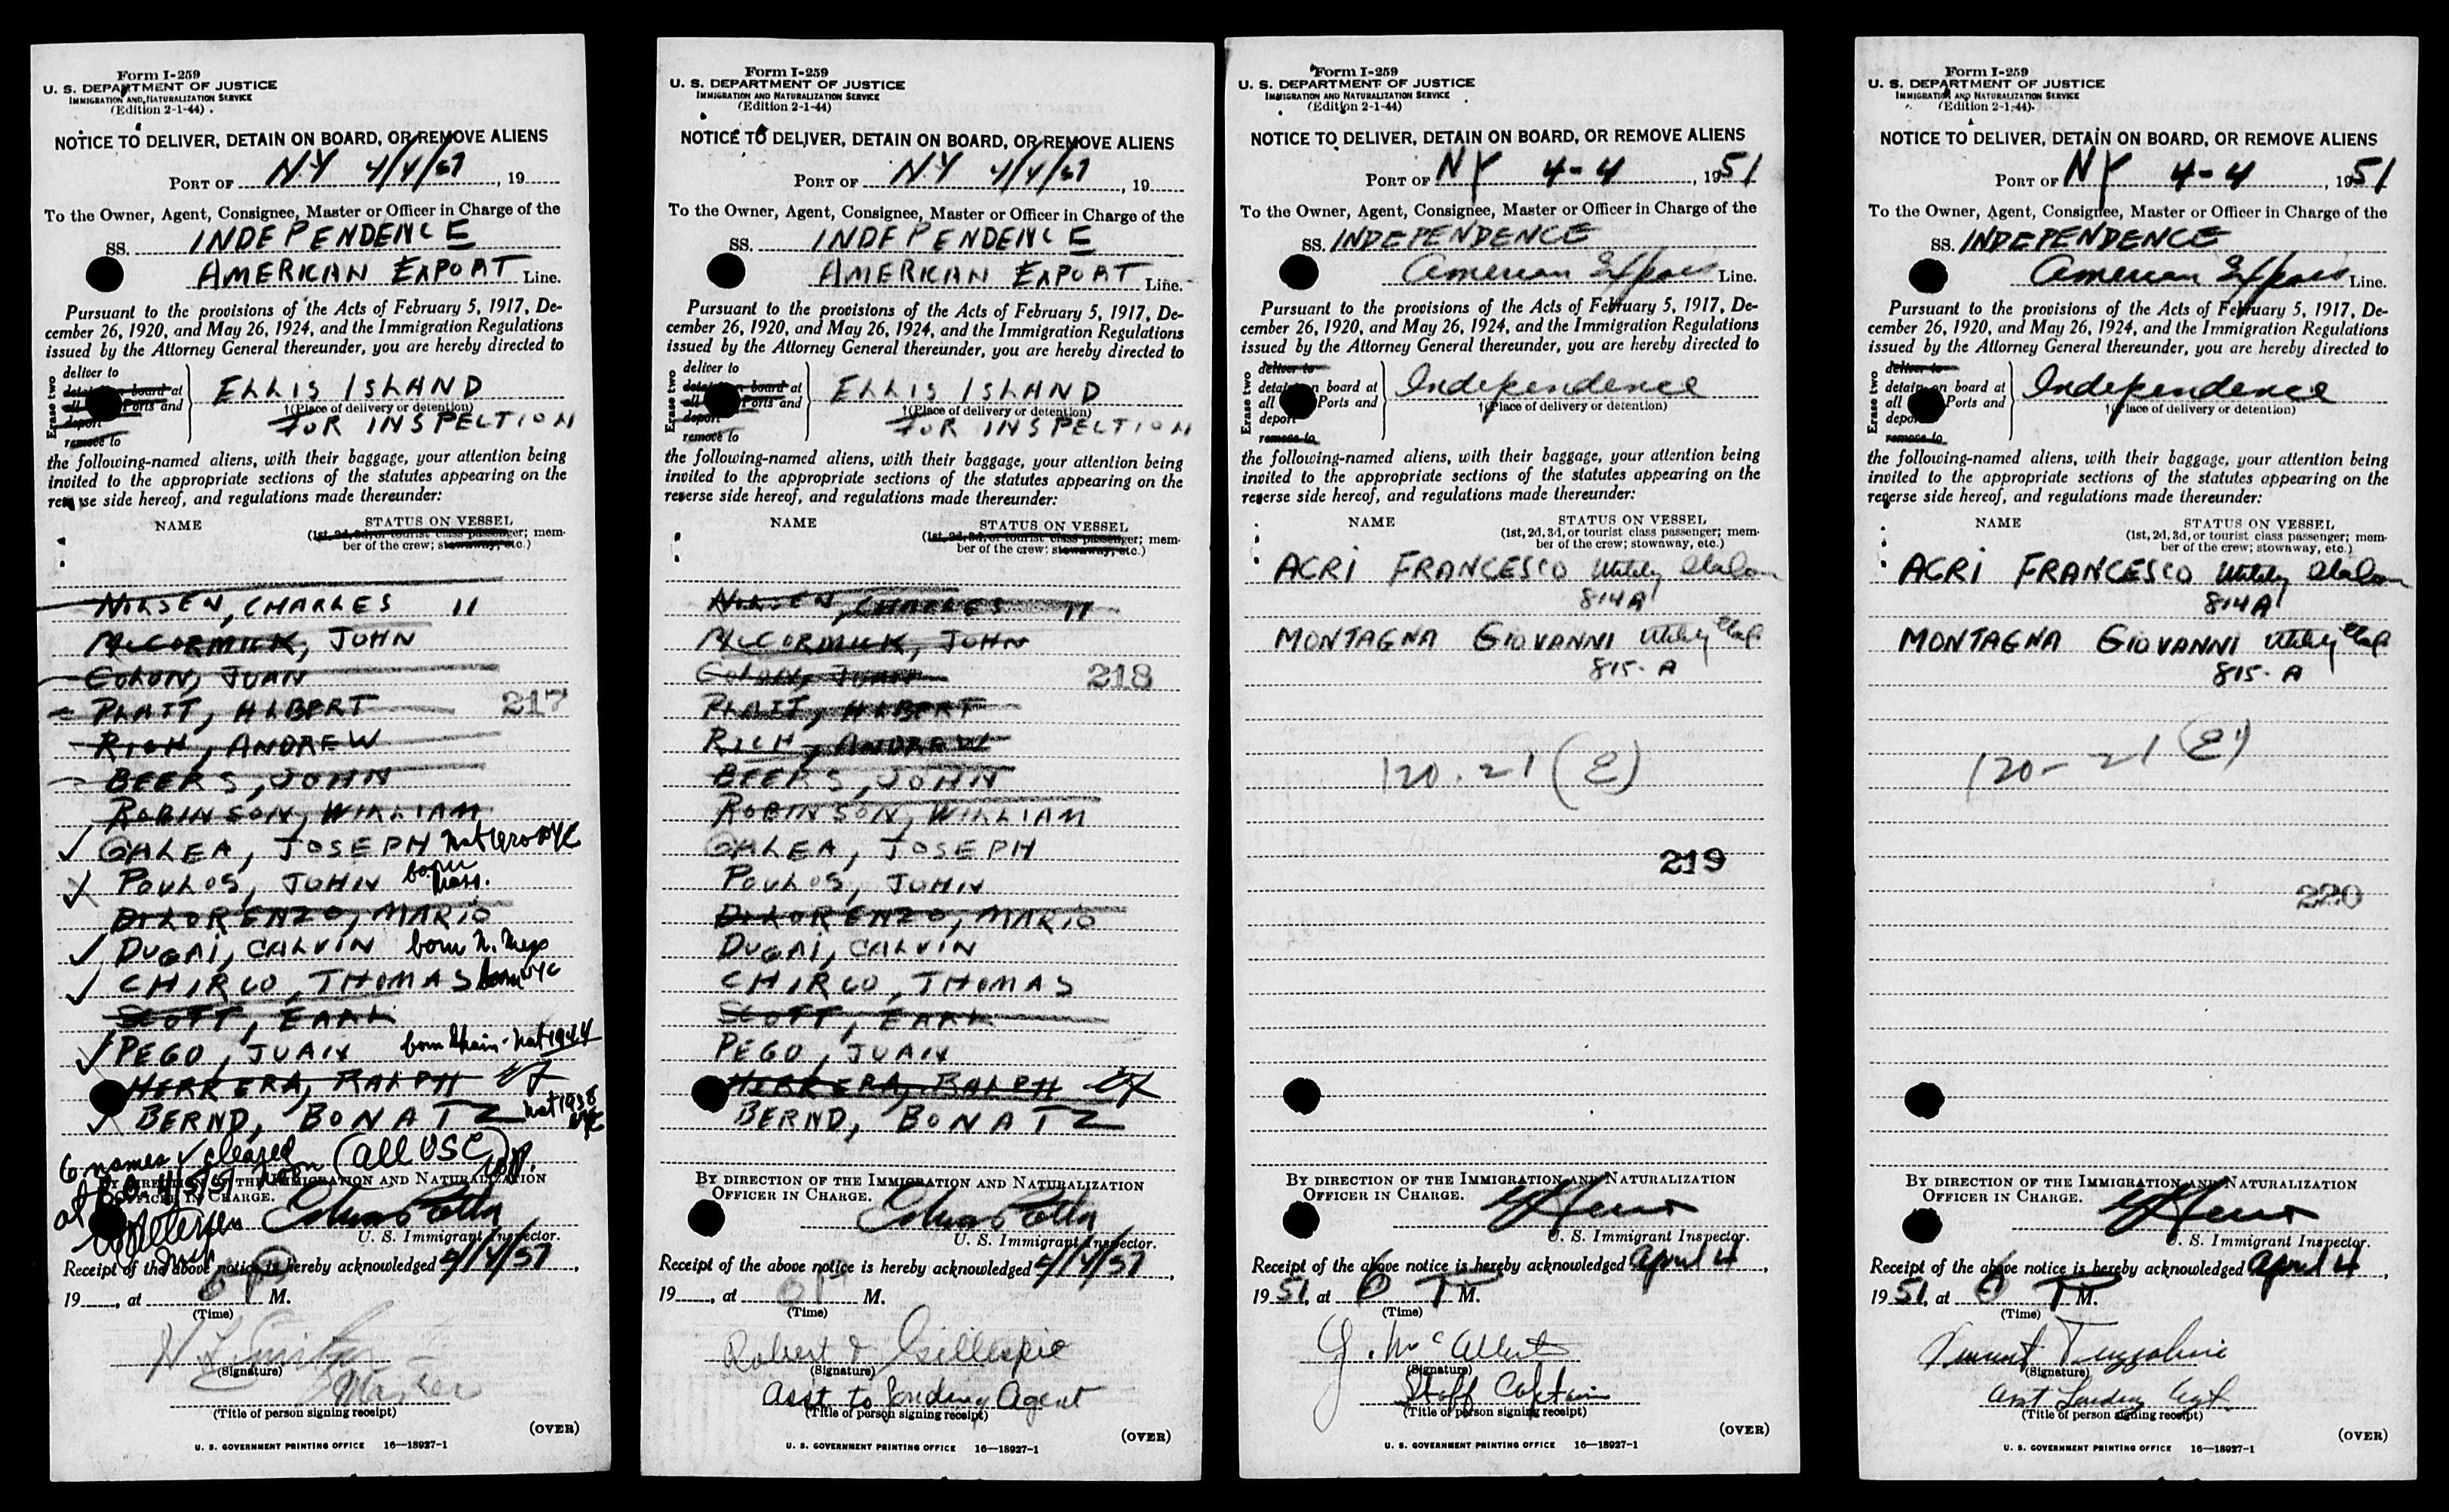 Form I-259
U. S. DEPARTMENT OF JUSTICE
IMMIGRATION AND NATURALIZATION SERVICE
(Edition 2-1-44)
NOTICE TO DELIVER, DETAIN ON BOARD, OR REMOVE ALIENS
PORT OF NY 4/4/51, 19
To the Owner, Agent, Consignee, Master or Officer in Charge of the
SS. INDEPENDENCE
AMERICAN EXPORT Line.
Pursuant to the provisions of the Acts of February 5, 1917, De-
cember 26, 1920, and May 26, 1924, and the Immigration Regulations
issued by the Attorney General thereunder, you are hereby directed to
Erase two
deliver to
detain on board at
all Ports and
deport
remove to
ELLIS ISLAND
†(Place of delivery or detention)
FOR INSPECTION
the following-named aliens, with their baggage, your attention being
invited to the appropriate sections of the statutes appearing on the
reverse side hereof, and regulations made thereunder:
NAME STATUS ON VESSEL
(1st, 2d, 3d, or tourist class passenger; mem-
ber of the crew; stowaway, etc.)
NILSEN, CHARLES 11
McCORMICK, JOHN
COLON, JUAN
PLATT, ALBERT 217
RICH, ANDREW
BEERS, JOHN
ROBINSON, WILLIAM
GALEA, JOSEPH
POULOS, JOHN born Mass.
DILORENZO, MARIO
DUGAI, CALVIN born N. Mex
CHIRCO, THOMAS born NYC
SCOTT, EARL
PEGO, JUAN born Spain - Nat 1944
HERRERA, RALPH
BERND, BONATZ Nat 1938 NYC
6 names ✓ cleared (all USC)
BY DIRECTION OF THE IMMIGRATION AND NATURALIZATION
OFFICER IN CHARGE.
U. S. Immigrant Inspector.
Receipt of the above notice is hereby acknowledged 4/4/51,
19, at 6 P M.
(Time)
(Signature)
Master
(Title of person signing receipt)
(OVER)
U. S. GOVERNMENT PRINTING OFFICE 16—18927-1
Form I-259
U. S. DEPARTMENT OF JUSTICE
IMMIGRATION AND NATURALIZATION SERVICE
(Edition 2-1-44)
NOTICE TO DELIVER, DETAIN ON BOARD, OR REMOVE ALIENS
PORT OF NY 4/4/51, 19
To the Owner, Agent, Consignee, Master or Officer in Charge of the
SS. INDEPENDENCE
AMERICAN EXPORT Line.
Pursuant to the provisions of the Acts of February 5, 1917, De-
cember 26, 1920, and May 26, 1924, and the Immigration Regulations
issued by the Attorney General thereunder, you are hereby directed to
Erase two
deliver to
detain on board at
all Ports and
deport
remove to
ELLIS ISLAND
†(Place of delivery or detention)
FOR INSPECTION
the following-named aliens, with their baggage, your attention being
invited to the appropriate sections of the statutes appearing on the
reverse side hereof, and regulations made thereunder:
NAME STATUS ON VESSEL
(1st, 2d, 3d, or tourist class passenger; mem-
ber of the crew; stowaway, etc.)
NILSEN, CHARLES 11
McCORMICK, JOHN
COLON, JUAN 218
PLATT, ALBERT
RICH, ANDREW
BEERS, JOHN
ROBINSON, WILLIAM
GALEA, JOSEPH
POULOS, JOHN
DILORENZO, MARIO
DUGAI, CALVIN
CHIRCO, THOMAS
SCOTT, EARL
PEGO, JUAN
HERRERA, RALPH
BERND, BONATZ
BY DIRECTION OF THE IMMIGRATION AND NATURALIZATION
OFFICER IN CHARGE.
U. S. Immigrant Inspector.
Receipt of the above notice is hereby acknowledged 4/4/51,
19, at 6 P M.
(Time)
Robert J Gillespie
(Signature)
Asst to Landing Agent
(Title of person signing receipt)
(OVER)
U. S. GOVERNMENT PRINTING OFFICE 16—18927-1
Form I-259
U. S. DEPARTMENT OF JUSTICE
IMMIGRATION AND NATURALIZATION SERVICE
(Edition 2-1-44)
NOTICE TO DELIVER, DETAIN ON BOARD, OR REMOVE ALIENS
PORT OF NY 4-4, 1951
To the Owner, Agent, Consignee, Master or Officer in Charge of the
SS. INDEPENDENCE
American Export Line.
Pursuant to the provisions of the Acts of February 5, 1917, De-
cember 26, 1920, and May 26, 1924, and the Immigration Regulations
issued by the Attorney General thereunder, you are hereby directed to
Erase two
deliver to
detain on board at
all Ports and
deport
remove to
Independence
†(Place of delivery or detention)
the following-named aliens, with their baggage, your attention being
invited to the appropriate sections of the statutes appearing on the
reverse side hereof, and regulations made thereunder:
NAME STATUS ON VESSEL
(1st, 2d, 3d, or tourist class passenger; mem-
ber of the crew; stowaway, etc.)
ACRI FRANCESCO Utility Italian
814 A
MONTAGNA GIOVANNI Utility Ital
815-A
120-21 (2)
219
BY DIRECTION OF THE IMMIGRATION AND NATURALIZATION
OFFICER IN CHARGE.
U. S. Immigrant Inspector.
Receipt of the above notice is hereby acknowledged April 4,
1951, at 6 P M.
(Time)
(Signature)
Staff Captain
(Title of person signing receipt)
(OVER)
U. S. GOVERNMENT PRINTING OFFICE 16—18927-1
Form I-259
U. S. DEPARTMENT OF JUSTICE
IMMIGRATION AND NATURALIZATION SERVICE
(Edition 2-1-44)
NOTICE TO DELIVER, DETAIN ON BOARD, OR REMOVE ALIENS
PORT OF NY 4-4, 1951
To the Owner, Agent, Consignee, Master or Officer in Charge of the
SS. INDEPENDENCE
American Export Line.
Pursuant to the provisions of the Acts of February 5, 1917, De-
cember 26, 1920, and May 26, 1924, and the Immigration Regulations
issued by the Attorney General thereunder, you are hereby directed to
Erase two
deliver to
detain on board at
all Ports and
deport
remove to
Independence
†(Place of delivery or detention)
the following-named aliens, with their baggage, your attention being
invited to the appropriate sections of the statutes appearing on the
reverse side hereof, and regulations made thereunder:
NAME STATUS ON VESSEL
(1st, 2d, 3d, or tourist class passenger; mem-
ber of the crew; stowaway, etc.)
ACRI FRANCESCO Utility Italian
814 A
MONTAGNA GIOVANNI Utility Ital
815-A
120-21 (2)
220
BY DIRECTION OF THE IMMIGRATION AND NATURALIZATION
OFFICER IN CHARGE.
U. S. Immigrant Inspector.
Receipt of the above notice is hereby acknowledged April 4,
1951, at 6 P M.
(Time)
(Signature)
Asst Landing Agt.
(Title of person signing receipt)
(OVER)
U. S. GOVERNMENT PRINTING OFFICE 16—18927-1